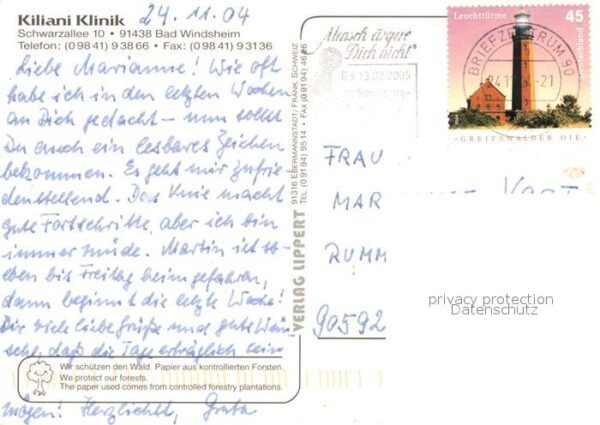 Kiliani Klinik
24.11.04
Schwarzallee 10 • 91438 Bad Windsheim
Telefon: (0 98 41) 9 38 66 • Fax: (0 98 41) 9 31 36
Liebe Marianne! Wie oft
habe ich in den letzten Wochen
an Dich gedacht – nun sollst
Du auch ein lesbares Zeichen
bekommen. Es geht mir zufrie
denstellend. Das Knie macht
gute Fortschritte, aber ich bin
immer müde. Martin ist so-
eben bis Freitag heimgefahren,
dann beginnt die letzte Woche!
Dir viele liebe Grüße und gute Wün
sche, daß die Tage erträglich sein
mögen! Herzlichst,
Wir schützen den Wald. Papier aus kontrollierten Forsten.
We protect our forests.
The paper used comes from controlled forestry plantations.
VERLAG LIPPERT
91316 EBERMANNSTADT/FRÄNK. SCHWEIZ
Mensch ärgere
Dich nicht
Bis 13.02.2005
BRIEFZENTRUM 90
-21
Leuchttürme
45
Deutschland
GREIFSWALDER OIE
FRAU
MAR
RUMM
90592
privacy protection
Datenschutz